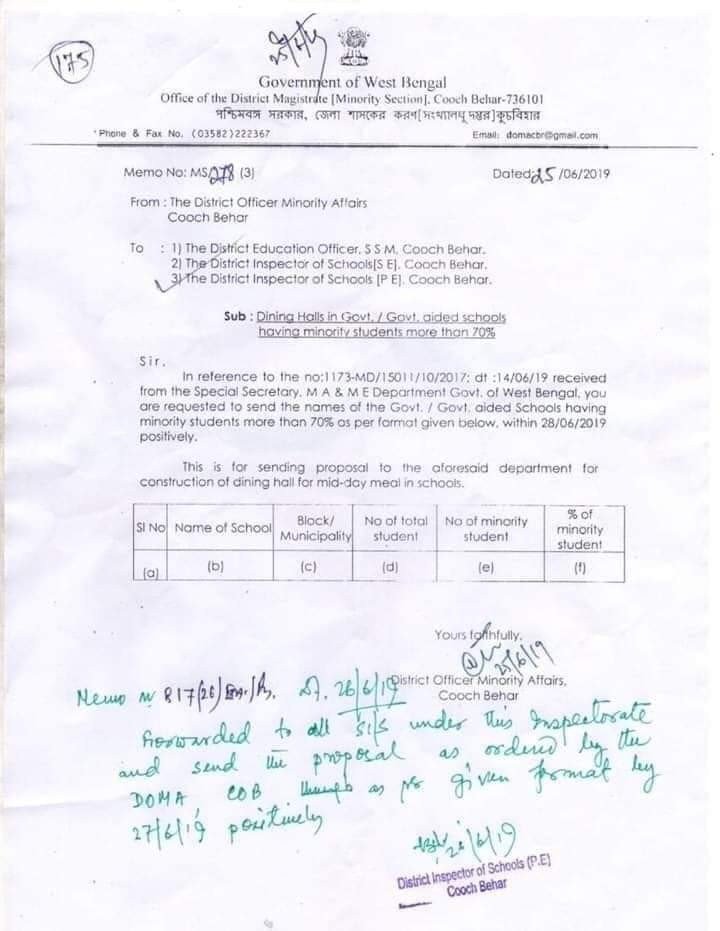 175
Government of West Bengal
Office of the District Magistrate [Minority Section], Cooch Behar-736101
পশ্চিমবঙ্গ সরকার, জেলা শাসকের করণ[সংখ্যালঘু দপ্তর]কুচবিহার
Phone & Fax No. (03582)222367 Email: domacbr@gmail.com
Memo No: MS/278 (3) Dated: 25/06/2019
From : The District Officer Minority Affairs
Cooch Behar
To : 1) The District Education Officer, S S M, Cooch Behar.
2) The District Inspector of Schools[S E], Cooch Behar.
3) The District Inspector of Schools [P E], Cooch Behar.
Sub : Dining Halls in Govt. / Govt. aided schools
having minority students more than 70%
Sir,
In reference to the no:1173-MD/15011/10/2017; dt :14/06/19 received
from the Special Secretary, M A & M E Department Govt. of West Bengal, you
are requested to send the names of the Govt. / Govt. aided Schools having
minority students more than 70% as per format given below, within 28/06/2019
positively.
This is for sending proposal to the aforesaid department for
construction of dining hall for mid-day meal in schools.
Sl No Name of School Block/ Municipality No of total student No of minority student % of minority student
(a) (b) (c) (d) (e) (f)
Yours faithfully,
25/6/19
District Officer Minority Affairs,
Cooch Behar
Memo No 817(26) 26/6/19
Forwarded to all SI/S under this Inspectorate
and send the proposal as ordered by the
DOMA, COB as per given format by
27/6/19 positively
26/6/19
District Inspector of Schools (P.E)
Cooch Behar